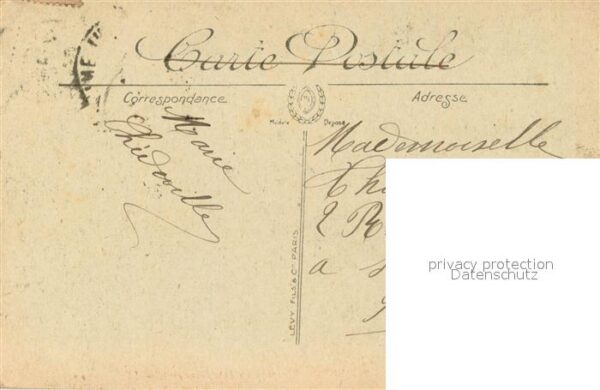 Carte Postale
Correspondance
Adresse
Modèle Déposé
Marie
Mademoiselle
2 R
a
LEVY FILS & Cie PARIS
privacy protection
Datenschutz